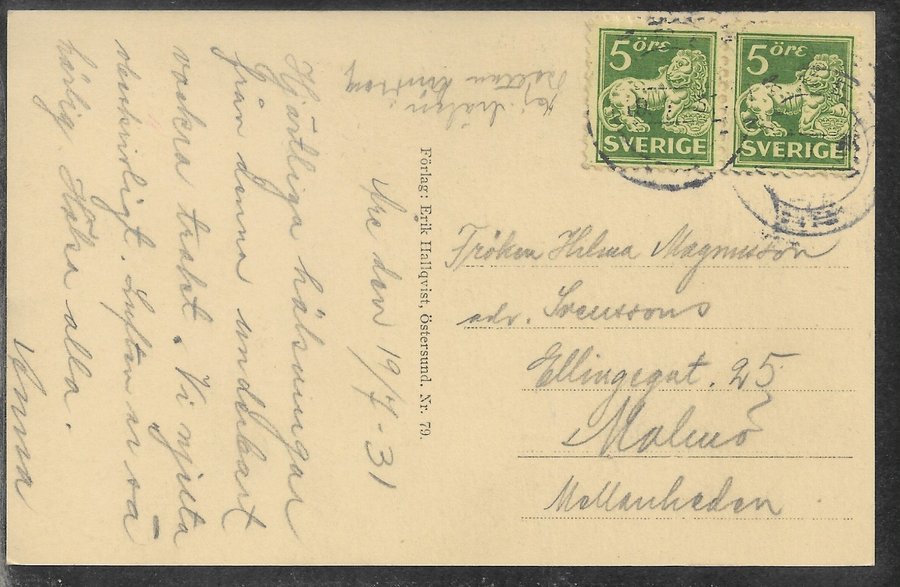 Åre den 19/7-31
Hjärtliga hälsningar
från denna underbart
vackra trakt. Vi njuta
obeskrivligt. Luften är så
härlig. Hälsa alla.
Anna
Förlag: Erik Hallqvist, Östersund. Nr. 79.
5 ÖRE
SVERIGE
5 ÖRE
SVERIGE
Fröken Hilma Magnusson
adr. Svenssons
Ellingegat. 25
Malmö
Mellanheden